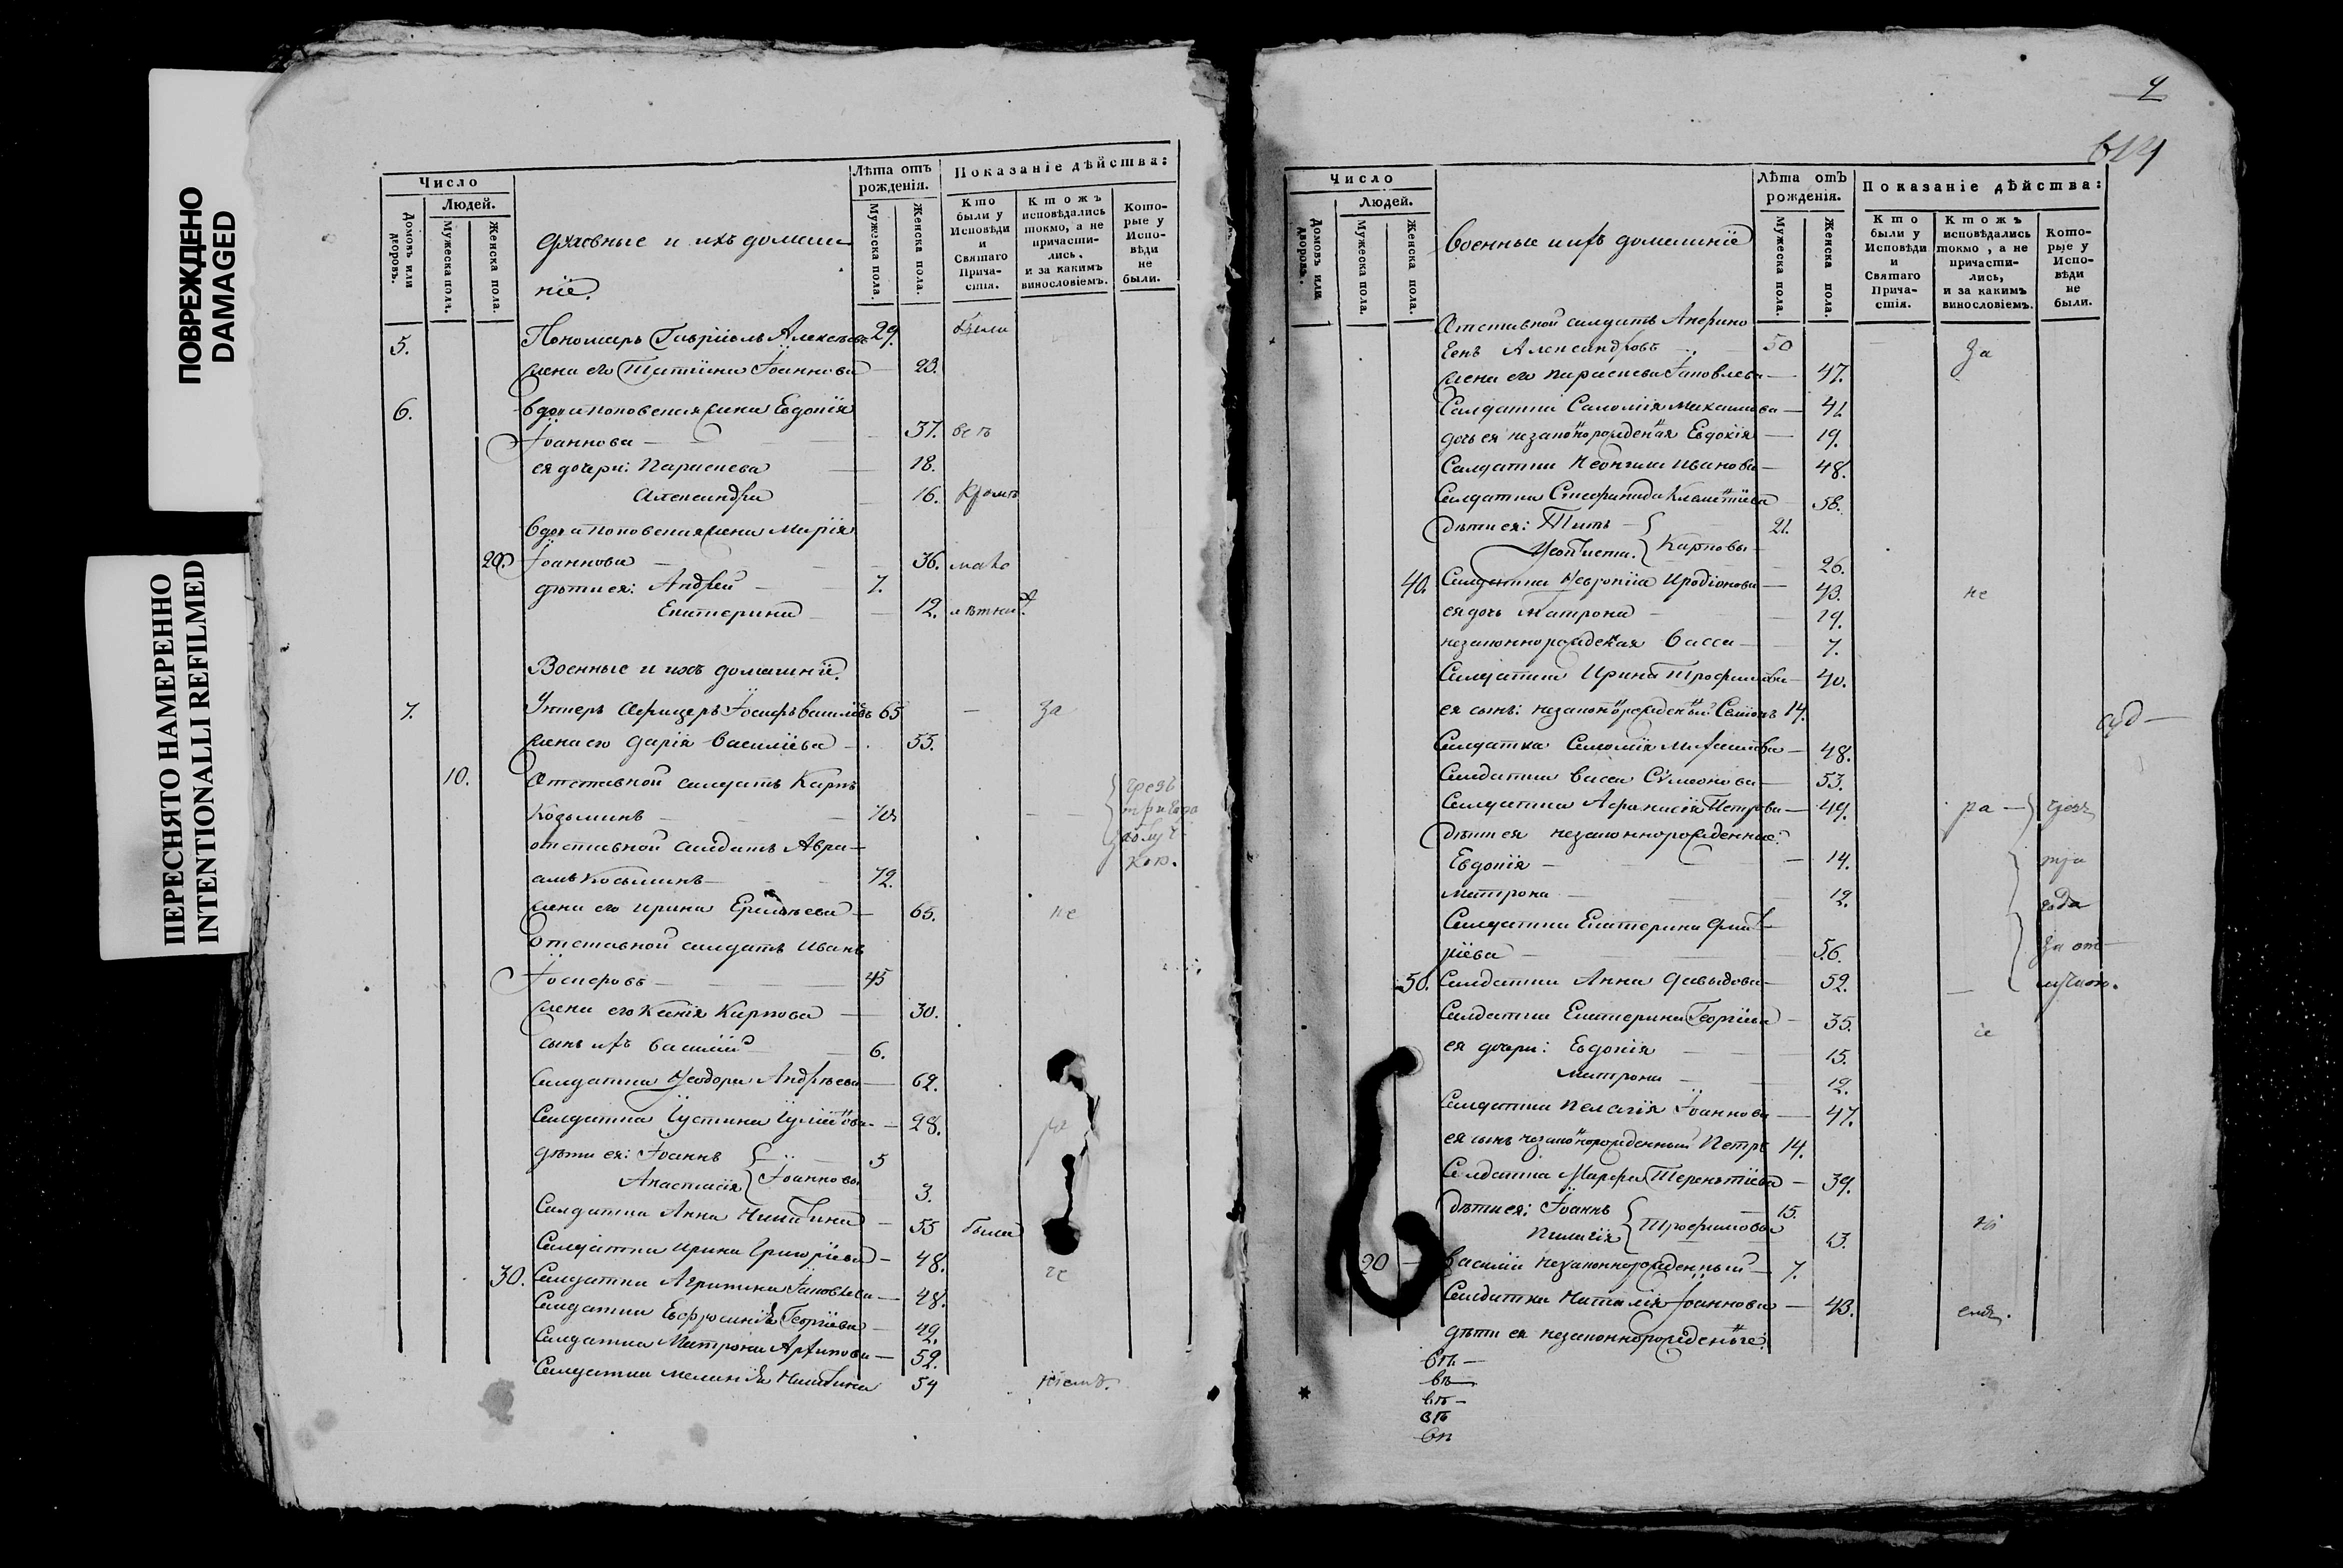 ПОВРЕЖДЕНО
DAMAGED
ПЕРЕСНЯТО НАМЕРЕННО
INTENTIONALLI REFILMED
Число
Людей.
Домовъ или дворовъ.
Мужеска пола.
Женска пола.
Духовные и ихъ домаш
ніе.
Лѣта отъ рожденія.
Мужеска пола.
Женска пола.
Показаніе дѣйства:
Кто были у Исповѣди и Святаго Прича-стія.
Ктожъ исповѣдались токмо, а не причасти-лись, и за какимъ винословіемъ.
Кото-рые у Испо-вѣди не были.
5. Пономарь Гавріилъ Алексѣевъ 29. были
жена его Татіана Іоаннова 23.
6. вдова поповская жена Евдокія
Іоаннова — 37. всѣ
ея дочери: Параскева 18.
Александра 16. кромѣ
вдова поповская жена Марія
20. Іоаннова 36. мало
дѣти ея: Андрей — 7.
Екатерина 12. лѣтнихъ
Военные и ихъ домашніе.
7. Унтеръ Офицеръ Іосифъ Васильевъ 65 — за
жена его Дарія Васильева — 55.
10. Отставной солдатъ Карпъ
Козьминъ — 70 чрезъ три года
отставной солдатъ Авра-
амъ Косьминъ — 72.
жена его Ирина — 65. не
отставной солдатъ Иванъ
Іосифовъ — 45
жена его Ксенія Карпова — 30.
сынъ ихъ Василій 6.
Солдатка Ѳеодора Андреева — 62.
Солдатка Іустина — 28. ра
дѣти ея: Іоаннъ — 5
Анастасія Іоанновы 3.
Солдатка Анна Никитина — 55 была
Солдатка Ирина Григорьева — 48.
30. Солдатка Агрипина Іаковлева — 48. че
Солдатка Евфросинія Георгіева — 42.
Солдатка Матрона Архипова — 52.
Солдатка Меланія Никитина 54 ніемъ.
4
614
Число
Людей.
Домовъ или дворовъ.
Мужеска пола.
Женска пола.
Военные и ихъ домашніе
Лѣта отъ рожденія.
Мужеска пола.
Женска пола.
Показаніе дѣйства:
Кто были у Исповѣди и Святаго Прича-стія.
Ктожъ исповѣдались токмо, а не причасти-лись, и за какимъ винословіемъ.
Кото-рые у Испо-вѣди не были.
Отставной солдатъ
Александровъ — 50 за
жена его Параскева Іаковлева — 47.
Солдатка Саломія Михайлова — 41
дочь ея незаконнорожденная Евдокія — 19.
Солдатка Иванова — 48.
Солдатка Климентіева 58.
дѣти ея: Титъ — 21.
Ѳеоктиста Карповы — 26.
40. Солдатка Ѳевронія Иродіонова — 43. не
ея дочь Матрона — 19.
незаконнорожденная Васса — 7.
Солдатка Ирина Трофимова — 40.
ея сынъ: незаконнорожденный Симонъ 14.
Солдатка Саломія Михайлова — 48.
Солдатка Васса Сѵмеонова — 53.
Солдатка Афанасія Петрова — 49. ра — чрезъ
дѣти ея незаконнорожденные:
Евдокія — 14. три
Матрона — 12. года
Солдатка Екатерина Дмит-
ріева — 56. за от-
50. Солдатка Анна Давыдова — 52. лучкою.
Солдатка Екатерина Георгіева — 35.
ея дочери: Евдокія — 15.
Матрона — 12.
Солдатка Пелагія Іоаннова — 47.
ея сынъ незаконнорожденный Петръ 14.
Солдатка Марфа Терентіева — 39.
дѣти ея: Іоаннъ — 15.
Пелагія Трофимовы 13. ні
20 — Василій незаконнорожденный — 7.
Солдатка Наталія Іоаннова — 43. емъ.
дѣти ея незаконнорожденые:
вп —
вп —
вп —
вп
вп